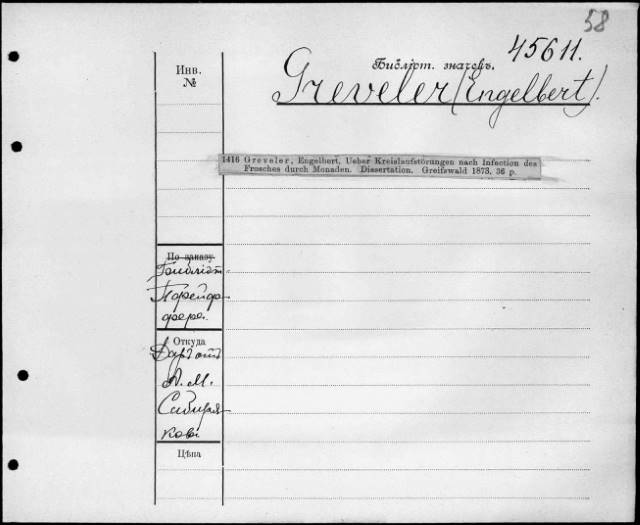 58
Библіот. значекъ. 45611.
Инв.
№
Greveler (Engelbert).
1416 Greveler, Engelbert, Ueber Kreislaufstörungen nach Infection des
Frosches durch Monaden. Dissertation. Greifswald 1873, 36 p.
По заказу
Библіот.
Прейер
Откуда
Даръ отъ
А. М.
Сибиря
кова
Цѣна